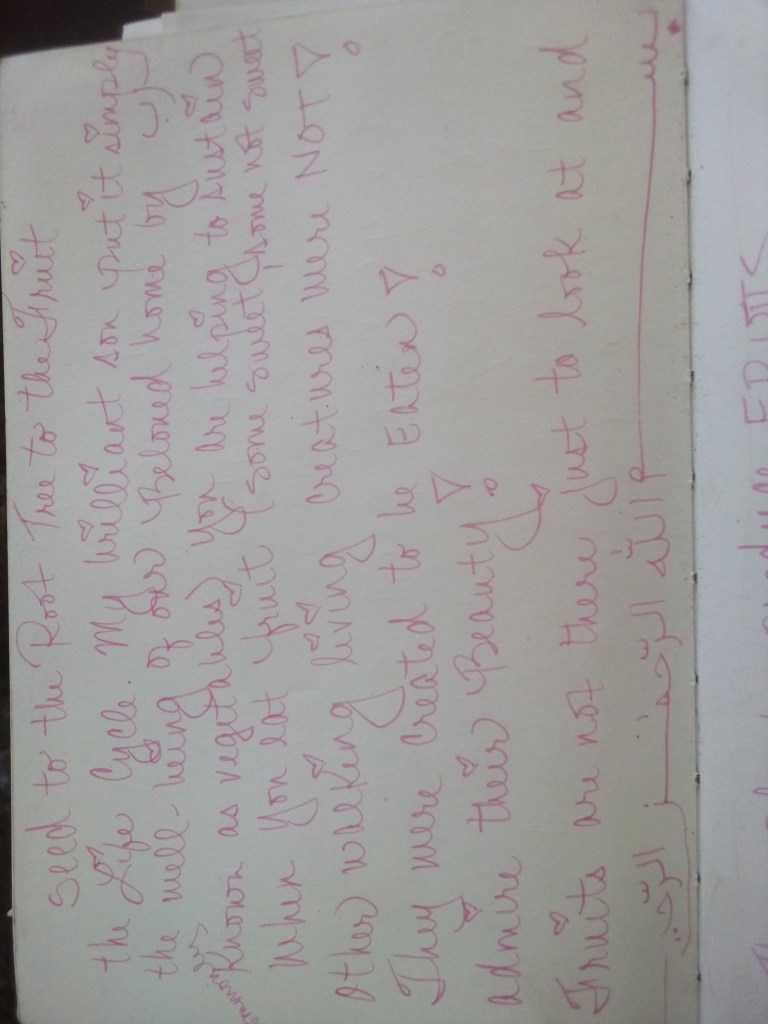 بسم الله الرحمن الرحيم
Fruits are not there just to look at and
admire their Beauty!
They were created to be Eaten!
Other walking living creatures were NOT!
When You eat fruit (some sweet, some not sweet
commonly Known as vegetables) You are helping to sustain
the well-being of our Beloved home by
the Life Cycle. My brilliant son put it simply
Seed to the Root Tree to the Fruit